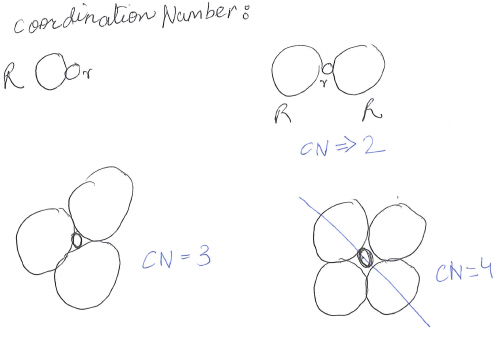 Coordination Number:
R r
r
R R
CN ⇒ 2
CN = 3
CN = 4